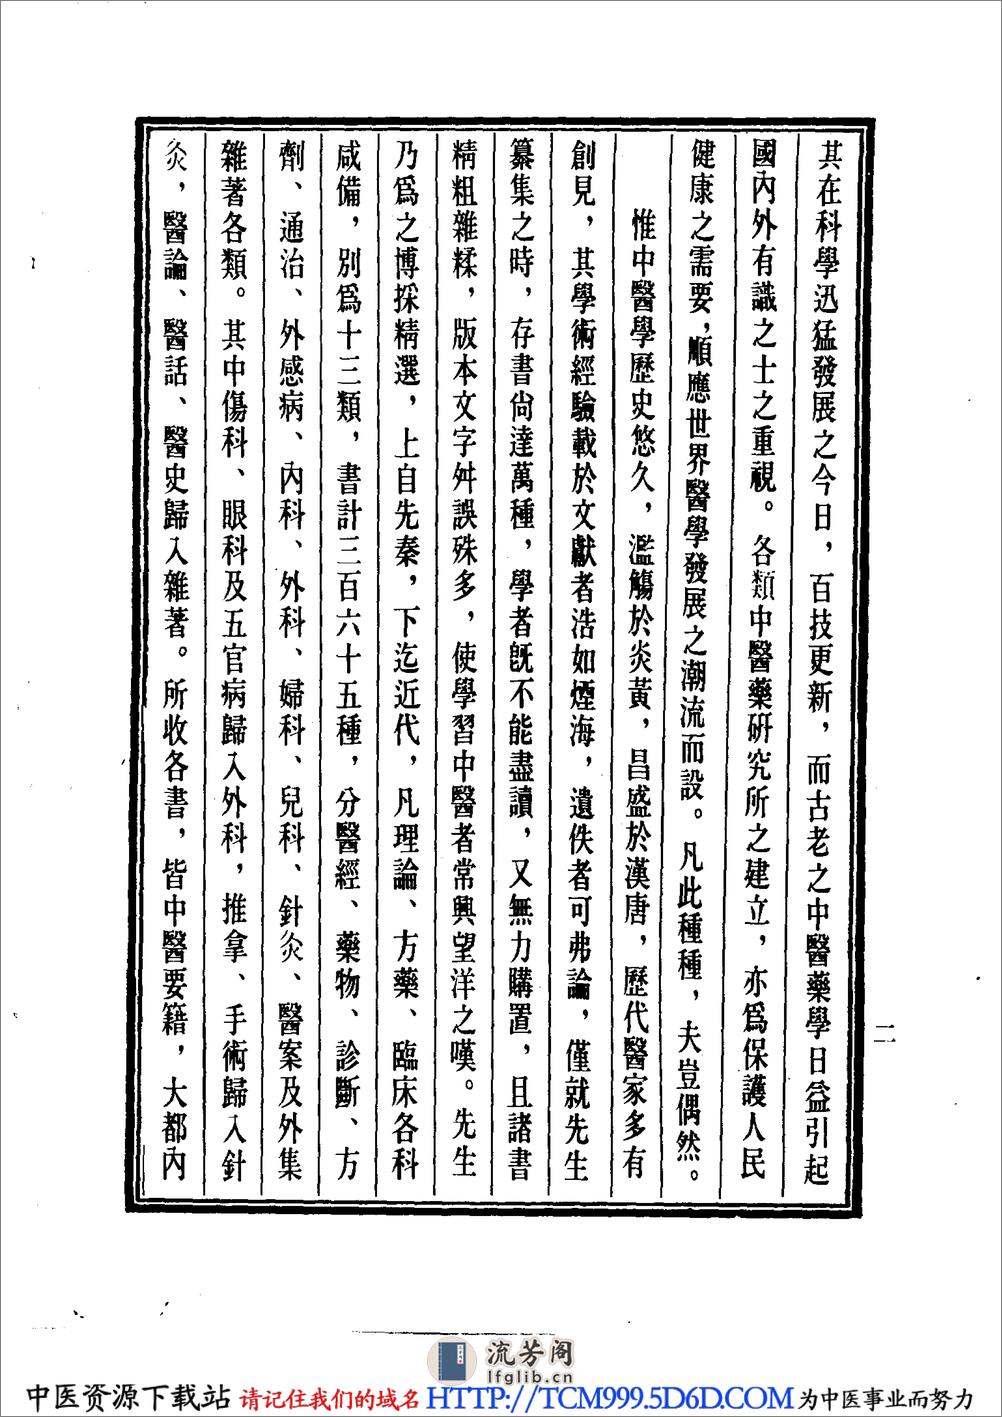 其在科學迅猛發展之今日，百技更新，而古老之中醫藥學日益引起
國內外有識之士之重視。各類中醫藥研究所之建立，亦爲保護人民
健康之需要，順應世界醫學發展之潮流而設。凡此種種，夫豈偶然。
惟中醫學歷史悠久，濫觴於炎黃，昌盛於漢唐，歷代醫家多有
創見，其學術經驗載於文獻者浩如煙海，遺佚者可弗論，僅就先生
纂集之時，存書尙達萬種，學者旣不能盡讀，又無力購置，且諸書
精粗雜糅，版本文字舛誤殊多，使學習中醫者常興望洋之嘆。先生
乃爲之博採精選，上自先秦，下迄近代，凡理論、方藥、臨床各科
咸備，別爲十三類，書計三百六十五種，分醫經、藥物、診斷、方
劑、通治、外感病、內科、外科、婦科、兒科、針灸、醫案及外集
雜著各類。其中傷科、眼科及五官病歸入外科，推拿、手術歸入針
灸，醫論、醫話、醫史歸入雜著。所收各書，皆中醫要籍，大都內
二
流芳阁
lfglib.cn
中医资源下载站 请记住我们的域名 HTTP://TCM999.5D6D.COM 为中医事业而努力